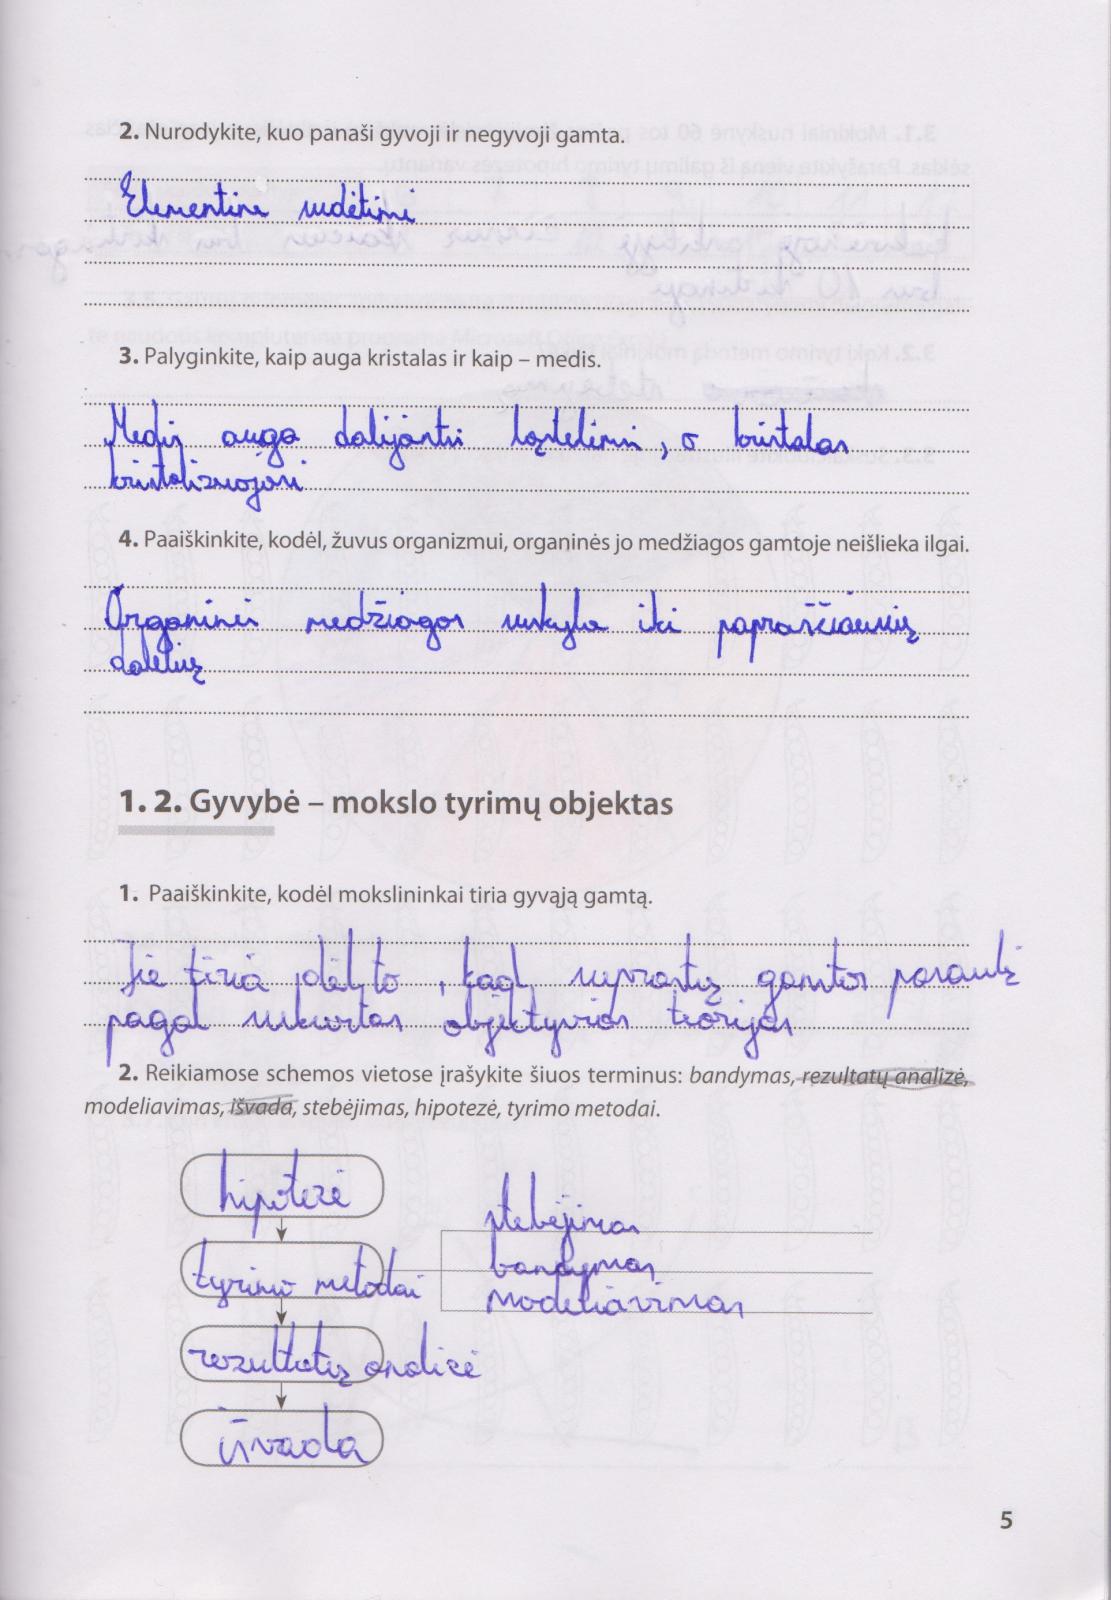 2. Nurodykite, kuo panaši gyvoji ir negyvoji gamta.
Elementine sudėtimi
3. Palyginkite, kaip auga kristalas ir kaip – medis.
Medis auga dalijantis ląstelėmis, o kristalas
kristalizuojasi
4. Paaiškinkite, kodėl, žuvus organizmui, organinės jo medžiagos gamtoje neišlieka ilgai.
Organinės medžiagos suskyla iki paprasčiausių
dalelių
1. 2. Gyvybė – mokslo tyrimų objektas
1. Paaiškinkite, kodėl mokslininkai tiria gyvąją gamtą.
Jie tiria dėl to, kad suprastų gamtos
pagal sukurtas objektyvias teorijas
2. Reikiamose schemos vietose įrašykite šiuos terminus: bandymas, rezultatų analizė,
modeliavimas, išvada, stebėjimas, hipotezė, tyrimo metodai.
hipotezė
stebėjimas
tyrimo metodai
bandymas
modeliavimas
rezultatų analizė
išvada
5